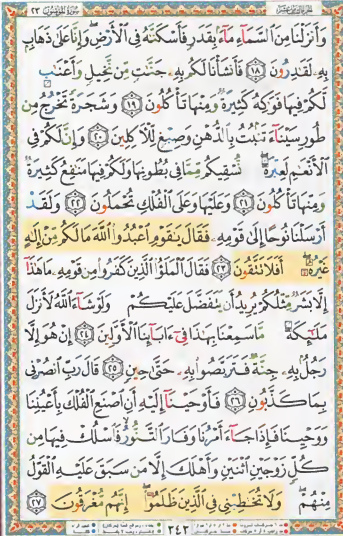 سورة المؤمنون ٢٣
وَأَنزَلْنَا مِنَ ٱلسَّمَآءِ مَآءًۢ بِقَدَرٍ فَأَسْكَنَّٰهُ فِى ٱلْأَرْضِ ۖ وَإِنَّا عَلَىٰ ذَهَابٍۭ
بِهِۦ لَقَٰدِرُونَ ١٨ فَأَنشَأْنَا لَكُم بِهِۦ جَنَّٰتٍ مِّن نَّخِيلٍ وَأَعْنَٰبٍ
لَّكُمْ فِيهَا فَوَٰكِهُ كَثِيرَةٌ وَمِنْهَا تَأْكُلُونَ ١٩ وَشَجَرَةً تَخْرُجُ مِن
طُورِ سَيْنَآءَ تَنۢبُتُ بِٱلدُّهْنِ وَصِبْغٍ لِّلْءَاكِلِينَ ٢٠ وَإِنَّ لَكُمْ فِى
ٱلْأَنْعَٰمِ لَعِبْرَةً ۖ نُّسْقِيكُم مِّمَّا فِى بُطُونِهَا وَلَكُمْ فِيهَا مَنَٰفِعُ كَثِيرَةٌ
وَمِنْهَا تَأْكُلُونَ ٢١ وَعَلَيْهَا وَعَلَى ٱلْفُلْكِ تُحْمَلُونَ ٢٢ وَلَقَدْ
أَرْسَلْنَا نُوحًا إِلَىٰ قَوْمِهِۦ فَقَالَ يَٰقَوْمِ ٱعْبُدُوا۟ ٱللَّهَ مَا لَكُم مِّنْ إِلَٰهٍ
غَيْرُهُۥٓ ۖ أَفَلَا تَتَّقُونَ ٢٣ فَقَالَ ٱلْمَلَؤُا۟ ٱلَّذِينَ كَفَرُوا۟ مِن قَوْمِهِۦ مَا هَٰذَآ
إِلَّا بَشَرٌ مِّثْلُكُمْ يُرِيدُ أَن يَتَفَضَّلَ عَلَيْكُمْ وَلَوْ شَآءَ ٱللَّهُ لَأَنزَلَ
مَلَٰٓئِكَةً مَّا سَمِعْنَا بِهَٰذَا فِىٓ ءَابَآئِنَا ٱلْأَوَّلِينَ ٢٤ إِنْ هُوَ إِلَّا
رَجُلٌۢ بِهِۦ جِنَّةٌ فَتَرَبَّصُوا۟ بِهِۦ حَتَّىٰ حِينٍ ٢٥ قَالَ رَبِّ ٱنصُرْنِى
بِمَا كَذَّبُونِ ٢٦ فَأَوْحَيْنَآ إِلَيْهِ أَنِ ٱصْنَعِ ٱلْفُلْكَ بِأَعْيُنِنَا
وَوَحْيِنَا فَإِذَا جَآءَ أَمْرُنَا وَفَارَ ٱلتَّنُّورُ ۙ فَٱسْلُكْ فِيهَا مِن
كُلٍّ زَوْجَيْنِ ٱثْنَيْنِ وَأَهْلَكَ إِلَّا مَن سَبَقَ عَلَيْهِ ٱلْقَوْلُ
مِنْهُمْ ۖ وَلَا تُخَٰطِبْنِى فِى ٱلَّذِينَ ظَلَمُوٓا۟ ۖ إِنَّهُم مُّغْرَقُونَ ٢٧
٣٤٣